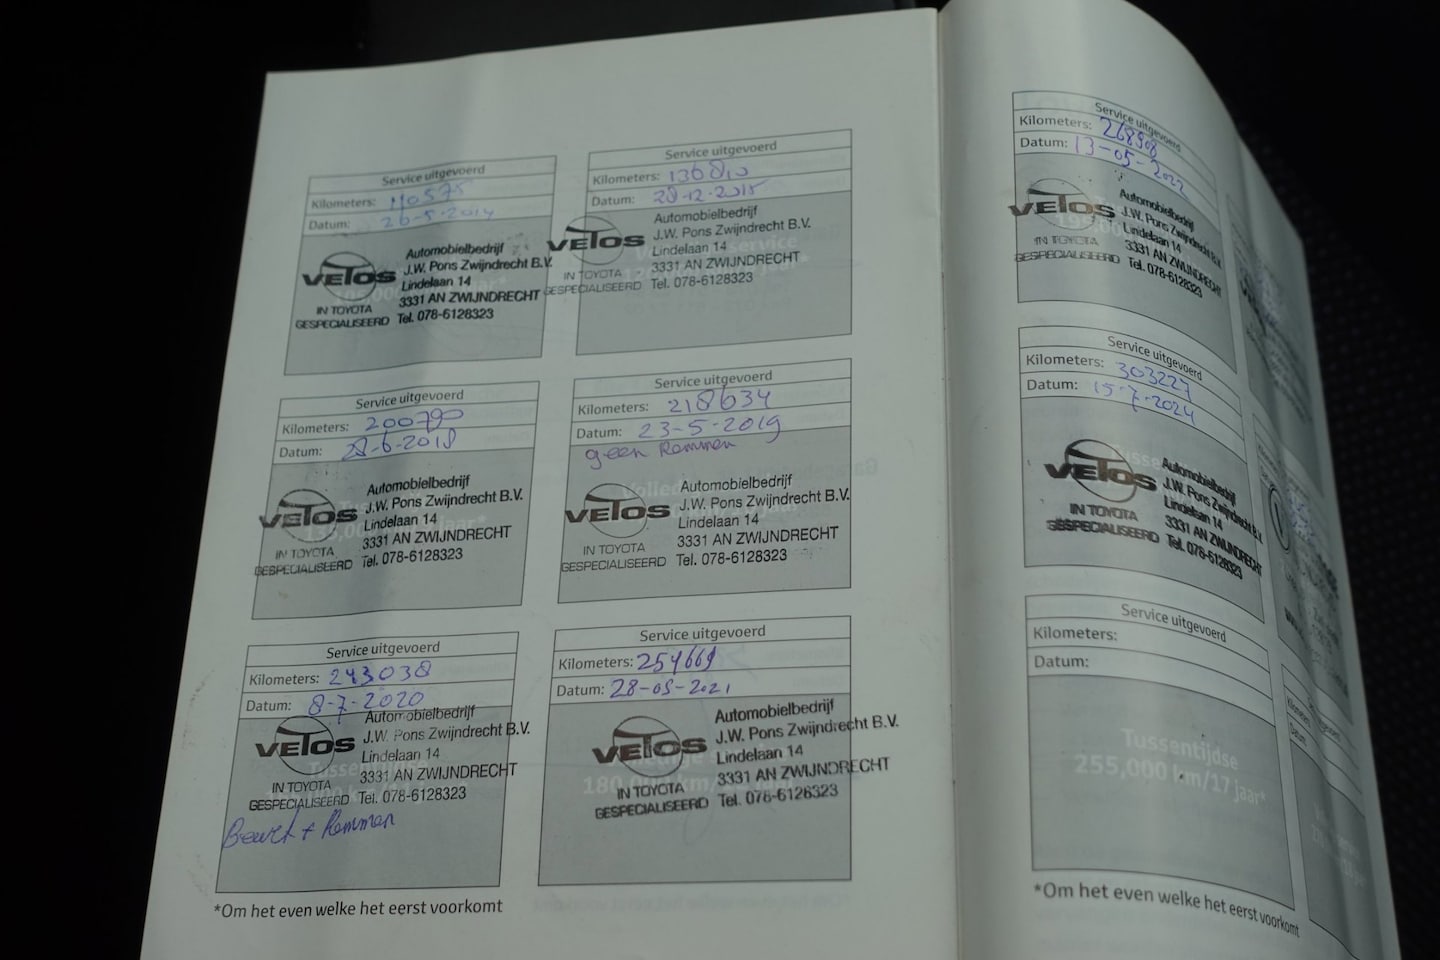 Service uitgevoerd
Kilometers: 110575
Datum: 26-5-2014
VETOS
IN TOYOTA
GESPECIALISEERD
Automobielbedrijf
J.W. Pons Zwijndrecht B.V.
Lindelaan 14
3331 AN ZWIJNDRECHT
Tel. 078-6128323
Service uitgevoerd
Kilometers: 136810
Datum: 28-12-2015
VETOS
IN TOYOTA
GESPECIALISEERD
Automobielbedrijf
J.W. Pons Zwijndrecht B.V.
Lindelaan 14
3331 AN ZWIJNDRECHT
Tel. 078-6128323
Service uitgevoerd
Kilometers: 200790
Datum: 28-6-2018
VETOS
IN TOYOTA
GESPECIALISEERD
Automobielbedrijf
J.W. Pons Zwijndrecht B.V.
Lindelaan 14
3331 AN ZWIJNDRECHT
Tel. 078-6128323
Service uitgevoerd
Kilometers: 218634
Datum: 23-5-2019
geen Remmen
VETOS
IN TOYOTA
GESPECIALISEERD
Automobielbedrijf
J.W. Pons Zwijndrecht B.V.
Lindelaan 14
3331 AN ZWIJNDRECHT
Tel. 078-6128323
Service uitgevoerd
Kilometers: 243038
Datum: 8-7-2020
VETOS
IN TOYOTA
GESPECIALISEERD
Automobielbedrijf
J.W. Pons Zwijndrecht B.V.
Lindelaan 14
3331 AN ZWIJNDRECHT
Tel. 078-6128323
Beurt + Remmen
Service uitgevoerd
Kilometers: 254669
Datum: 28-05-2021
180,000 km/
VETOS
IN TOYOTA
GESPECIALISEERD
Automobielbedrijf
J.W. Pons Zwijndrecht B.V.
Lindelaan 14
3331 AN ZWIJNDRECHT
Tel. 078-6128323
*Om het even welke het eerst voorkomt
Service uitgevoerd
Kilometers: 268908
Datum: 13-05-2022
VETOS
IN TOYOTA
GESPECIALISEERD
Automobielbedrijf
J.W. Pons Zwijndrecht B.V.
Lindelaan 14
3331 AN ZWIJNDRECHT
Tel. 078-6128323
Service uitgevoerd
Kilometers: 303227
Datum: 15-7-2024
VETOS
IN TOYOTA
GESPECIALISEERD
Automobielbedrijf
J.W. Pons Zwijndrecht B.V.
Lindelaan 14
3331 AN ZWIJNDRECHT
Tel. 078-6128323
Service uitgevoerd
Kilometers:
Datum:
Tussentijdse
255,000 km/17 jaar*
*Om het even welke het eerst voorkomt